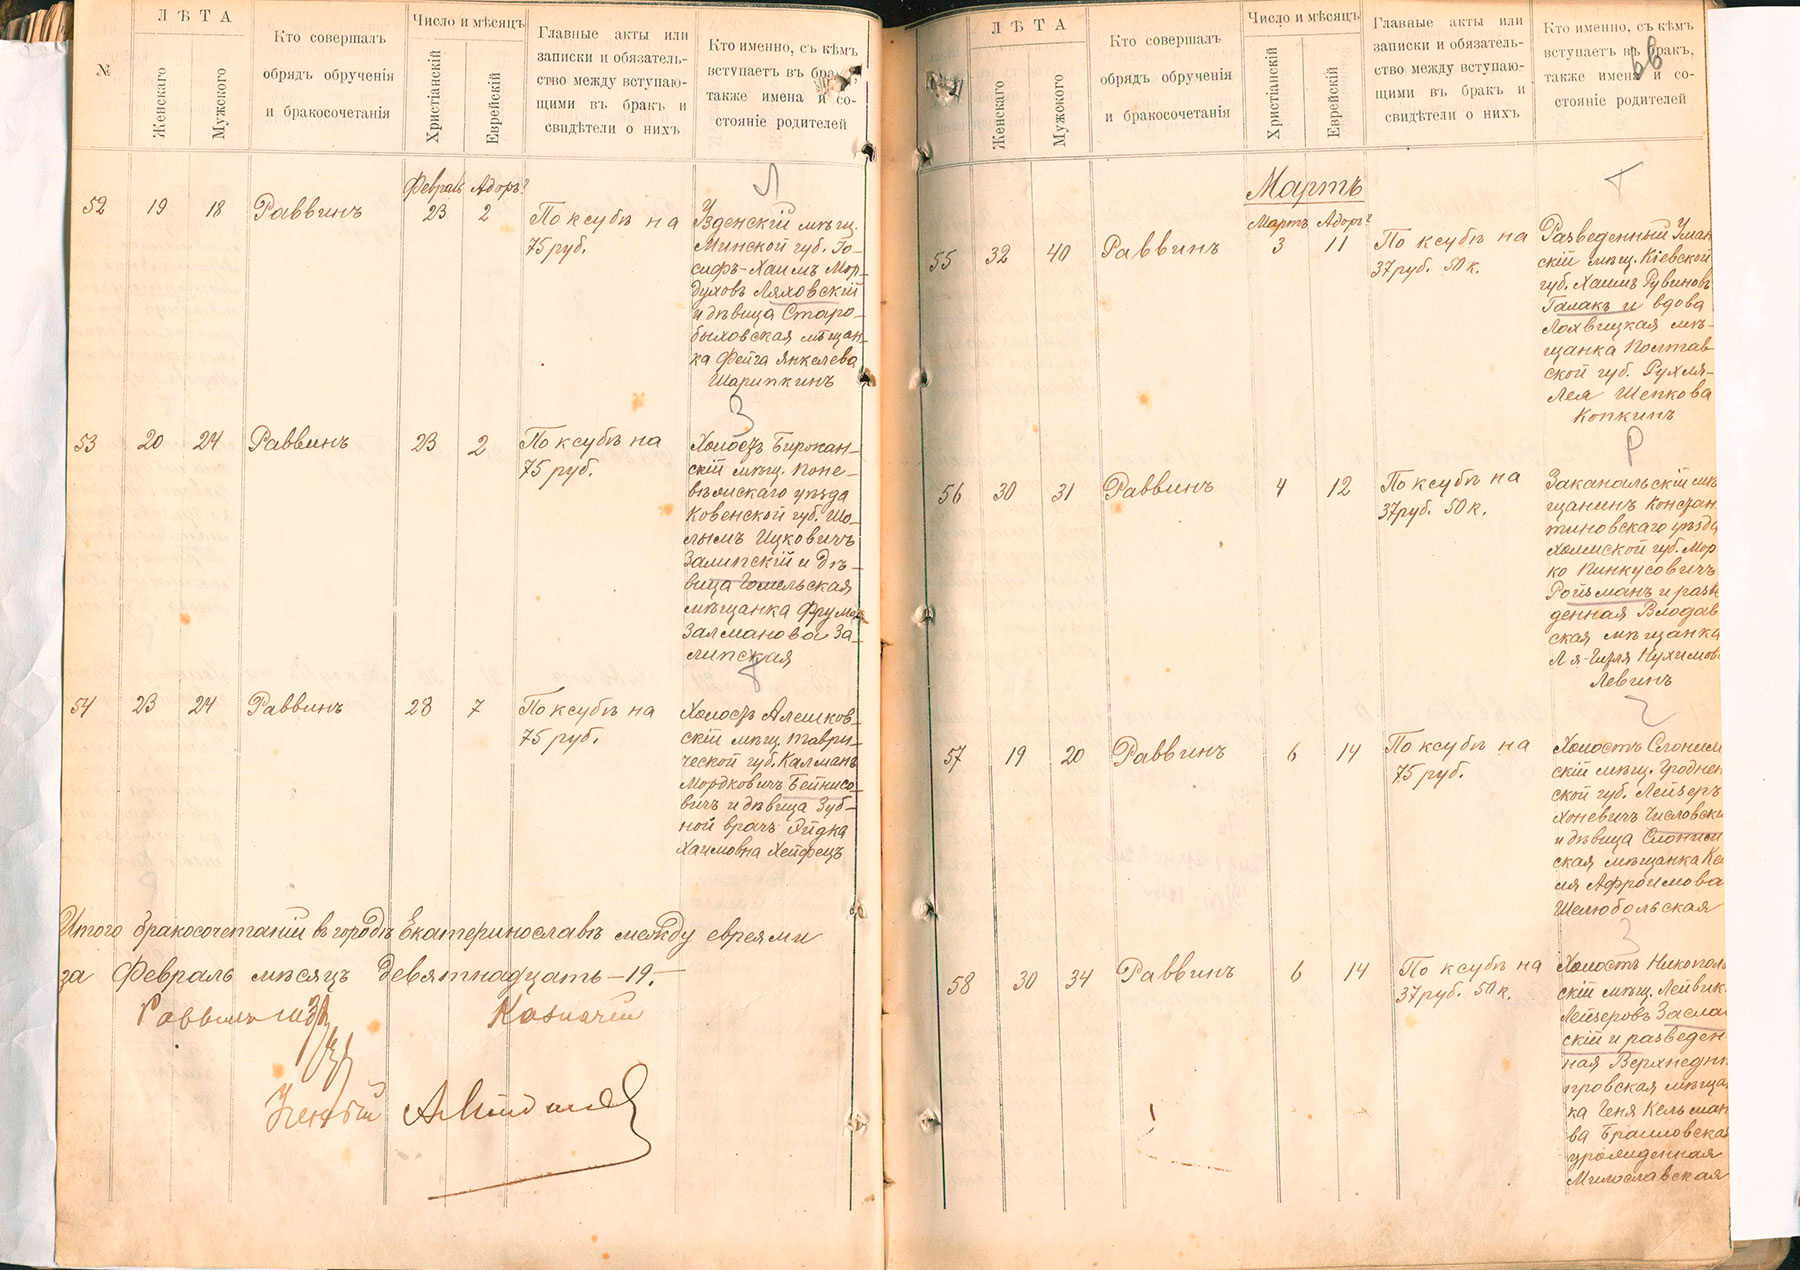 №
ЛѢТА
Женскаго
Мужского
Кто совершалъ
обрядъ обрученія
и бракосочетанія
Число и мѣсяцъ
Христіанскій
Еврейскій
Главные акты или
записки и обязатель-
ство между вступаю-
щими въ бракъ и
свидѣтели о нихъ
Кто именно, съ кѣмъ
вступаетъ въ бракъ,
также имена и со-
стояніе родителей
Февраль Адоръ
Л
52 19 18 Раввинъ 23 2
По ксубѣ на
75 руб.
Узденскій мѣщ.
Минской губ. Іо-
сифъ-Хаимъ Мор-
духовъ Ляховскій
и дѣвица Старо-
быховская мѣщан-
ка Фейга Янкелева
Шарипкинъ
З
53 20 24 Раввинъ 23 2
По ксубѣ на
75 руб.
Холостъ Биржан-
скій мѣщ. Поне-
вѣжскаго уѣзда
Ковенской губ. Шо-
лымъ Ицковичъ
Залипскій и дѣ-
вица Гомельская
мѣщанка Фрума
Залманова За-
липская
54 23 24 Раввинъ 28 7
По ксубѣ на
75 руб.
Холостъ Алешков-
скій мѣщ. Таври-
ческой губ. Калманъ
Мордковичъ Бейнисо-
вичъ и дѣвица Зуб-
ной врачъ
Хаимовна Хейфецъ
Итого бракосочетаній въ городѣ Екатеринославѣ между евреями
за Февраль мѣсяцъ девятнадцать —19.—
Раввинъ Казначей
Ученый
ЛѢТА
Женскаго
Мужского
Кто совершалъ
обрядъ обрученія
и бракосочетанія
Число и мѣсяцъ
Христіанскій
Еврейскій
Главные акты или
записки и обязатель-
ство между вступаю-
щими въ бракъ и
свидѣтели о нихъ
Кто именно, съ кѣмъ
вступаетъ въ бракъ,
также имена и со-
стояніе родителей
66
Мартъ
Мартъ Адоръ
Г
55 32 40 Раввинъ 3 11
По ксубѣ на
37 руб. 50 к.
Разведенный Уман
скій мѣщ. Кіевской
губ. Хаимъ Рувиновъ
Галакъ и вдова
Лохвицкая мѣ-
щанка Полтав-
ской губ. Рухля-
Лея Шепкова
Копкинъ
Р
56 30 31 Раввинъ 4 12
По ксубѣ на
37 руб. 50 к.
Заканальскій мѣ
щанинъ Констан
тиновскаго уѣзда
Холмской губ. Мор
ко Пинкусовичъ
Ройзманъ и разве
денная Влодав
ская мѣщанка
Нухимов
Левинъ
57 19 20 Раввинъ 6 14
По ксубѣ на
75 руб.
Холостъ Слоним
скій мѣщ. Гроднен
ской губ. Лейзеръ
Хоневичъ Числовскі
и дѣвица Слоним
ская мѣщанка Ке
ля Афроимова
Шелюбольская
З
58 30 34 Раввинъ 6 14
По ксубѣ на
37 руб. 50 к.
Холостъ Никополь
скій мѣщ. Лейвик
Лейзеровъ Засла
скій и разведен-
ная Верхнедне
провская мѣща
ка Геня Кельман
ва Браиловская
урожденная
Милославская